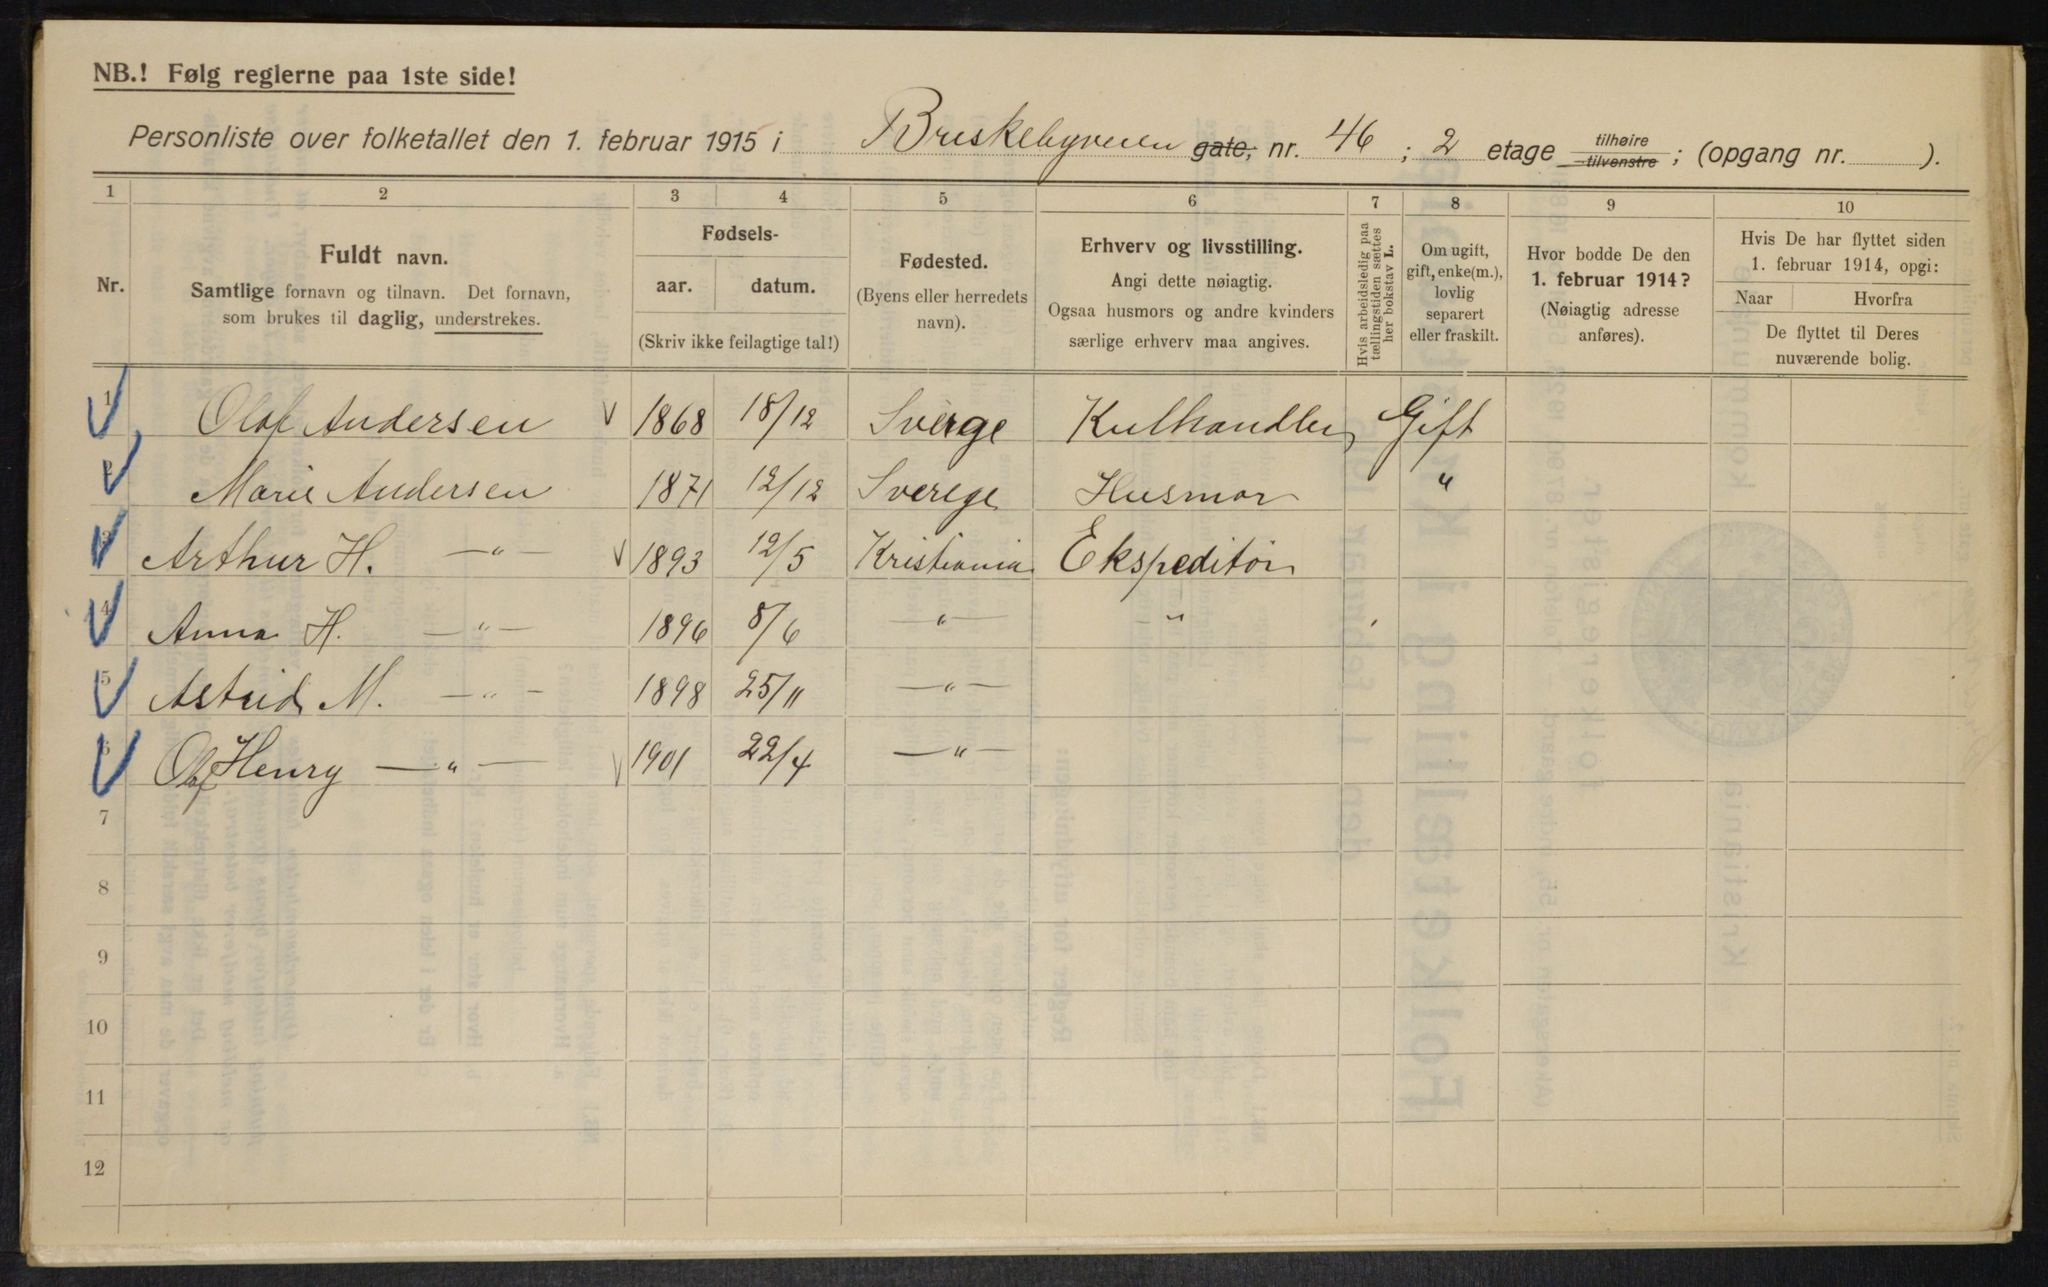 NB.! Følg reglerne paa 1ste side!
Personliste over folketallet den 1. februar 1915 i Briskebyveien gate, nr. 46 ; 2 etage tilhøire tilvenstre ; (opgang nr. ).
1 2 3 4 5 6 7 8 9 10
Nr.
Fuldt navn.
Samtlige fornavn og tilnavn. Det fornavn,
som brukes til daglig, understrekes.
Fødsels-
aar. datum.
(Skriv ikke feilagtige tal!)
Fødested.
(Byens eller herredets
navn).
Erhverv og livsstilling.
Angi dette nøiagtig.
Ogsaa husmors og andre kvinders
særlige erhverv maa angives.
Hvis arbeidsledig paa
tællingstiden sættes
her bokstav L.
Om ugift,
gift, enke(m.),
lovlig
separert
eller fraskilt.
Hvor bodde De den
1. februar 1914?
(Nøiagtig adresse
anføres).
Hvis De har flyttet siden
1. februar 1914, opgi:
Naar Hvorfra
De flyttet til Deres
nuværende bolig.
1 Olaf Andersen 1868 18/12 Sverge Kulhandler Gift
2 Marie Andersen 1871 12/12 Sverege Husmor "
3 Arthur H. —"— 1893 12/5 Kristiania Ekspeditør
4 Anna H. —"— 1896 8/6 —"— "
5 Astrid M. —"— 1898 25/11 —"—
6 Olaf Henry —"— 1901 22/4 —"—
7
8
9
10
11
12